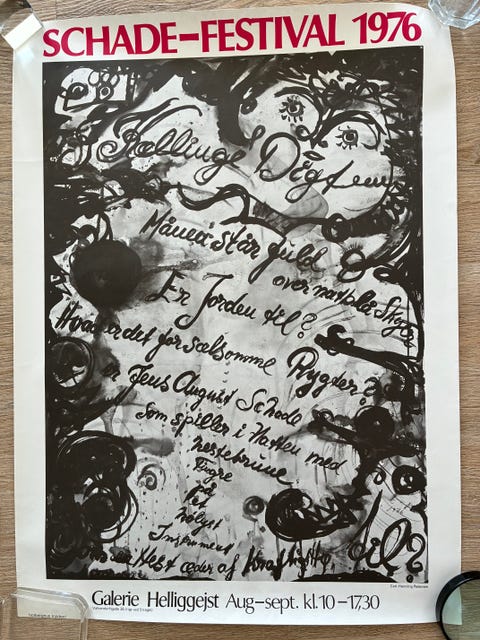 SCHADE-FESTIVAL 1976
Kællinge Digtem
Månen står fuld
over natblå Skoge
Er Jorden til?
Hvad er det for sælsomme Rygter?
er Jens August Schade
som spiller i Natten med
nøddebrune
Fingre
på
et
Instrument
af
til?
Galerie Helliggejst Aug-sept. kl.10-17,30